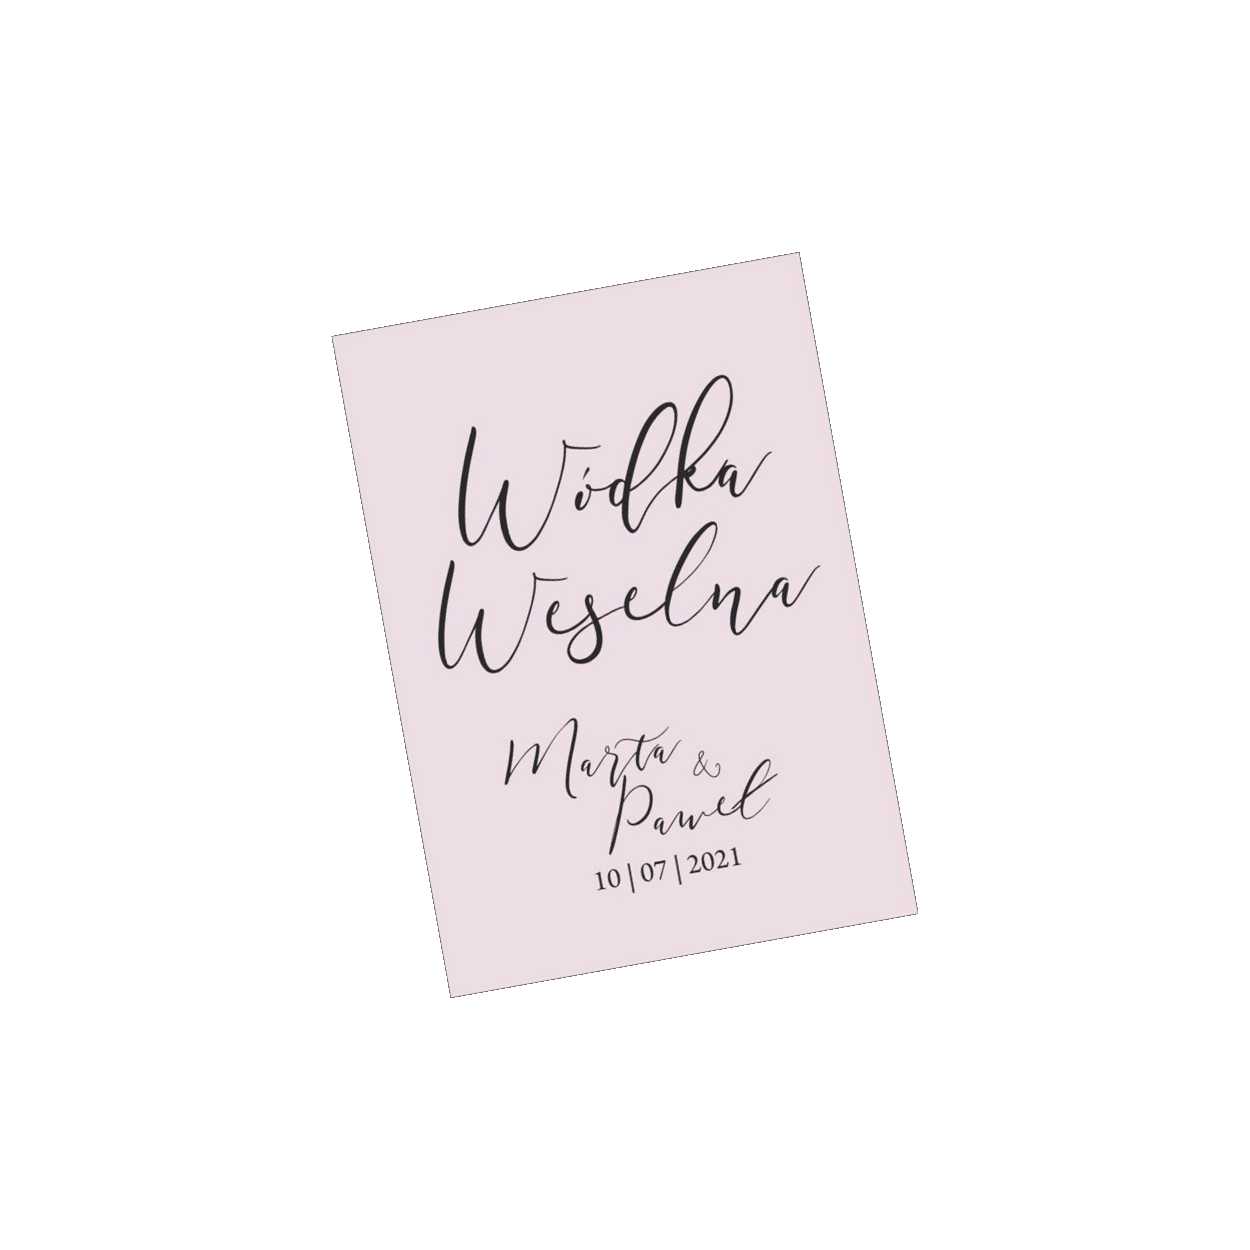 Wódka
Weselna
Marta &
Paweł
10 | 07 | 2021